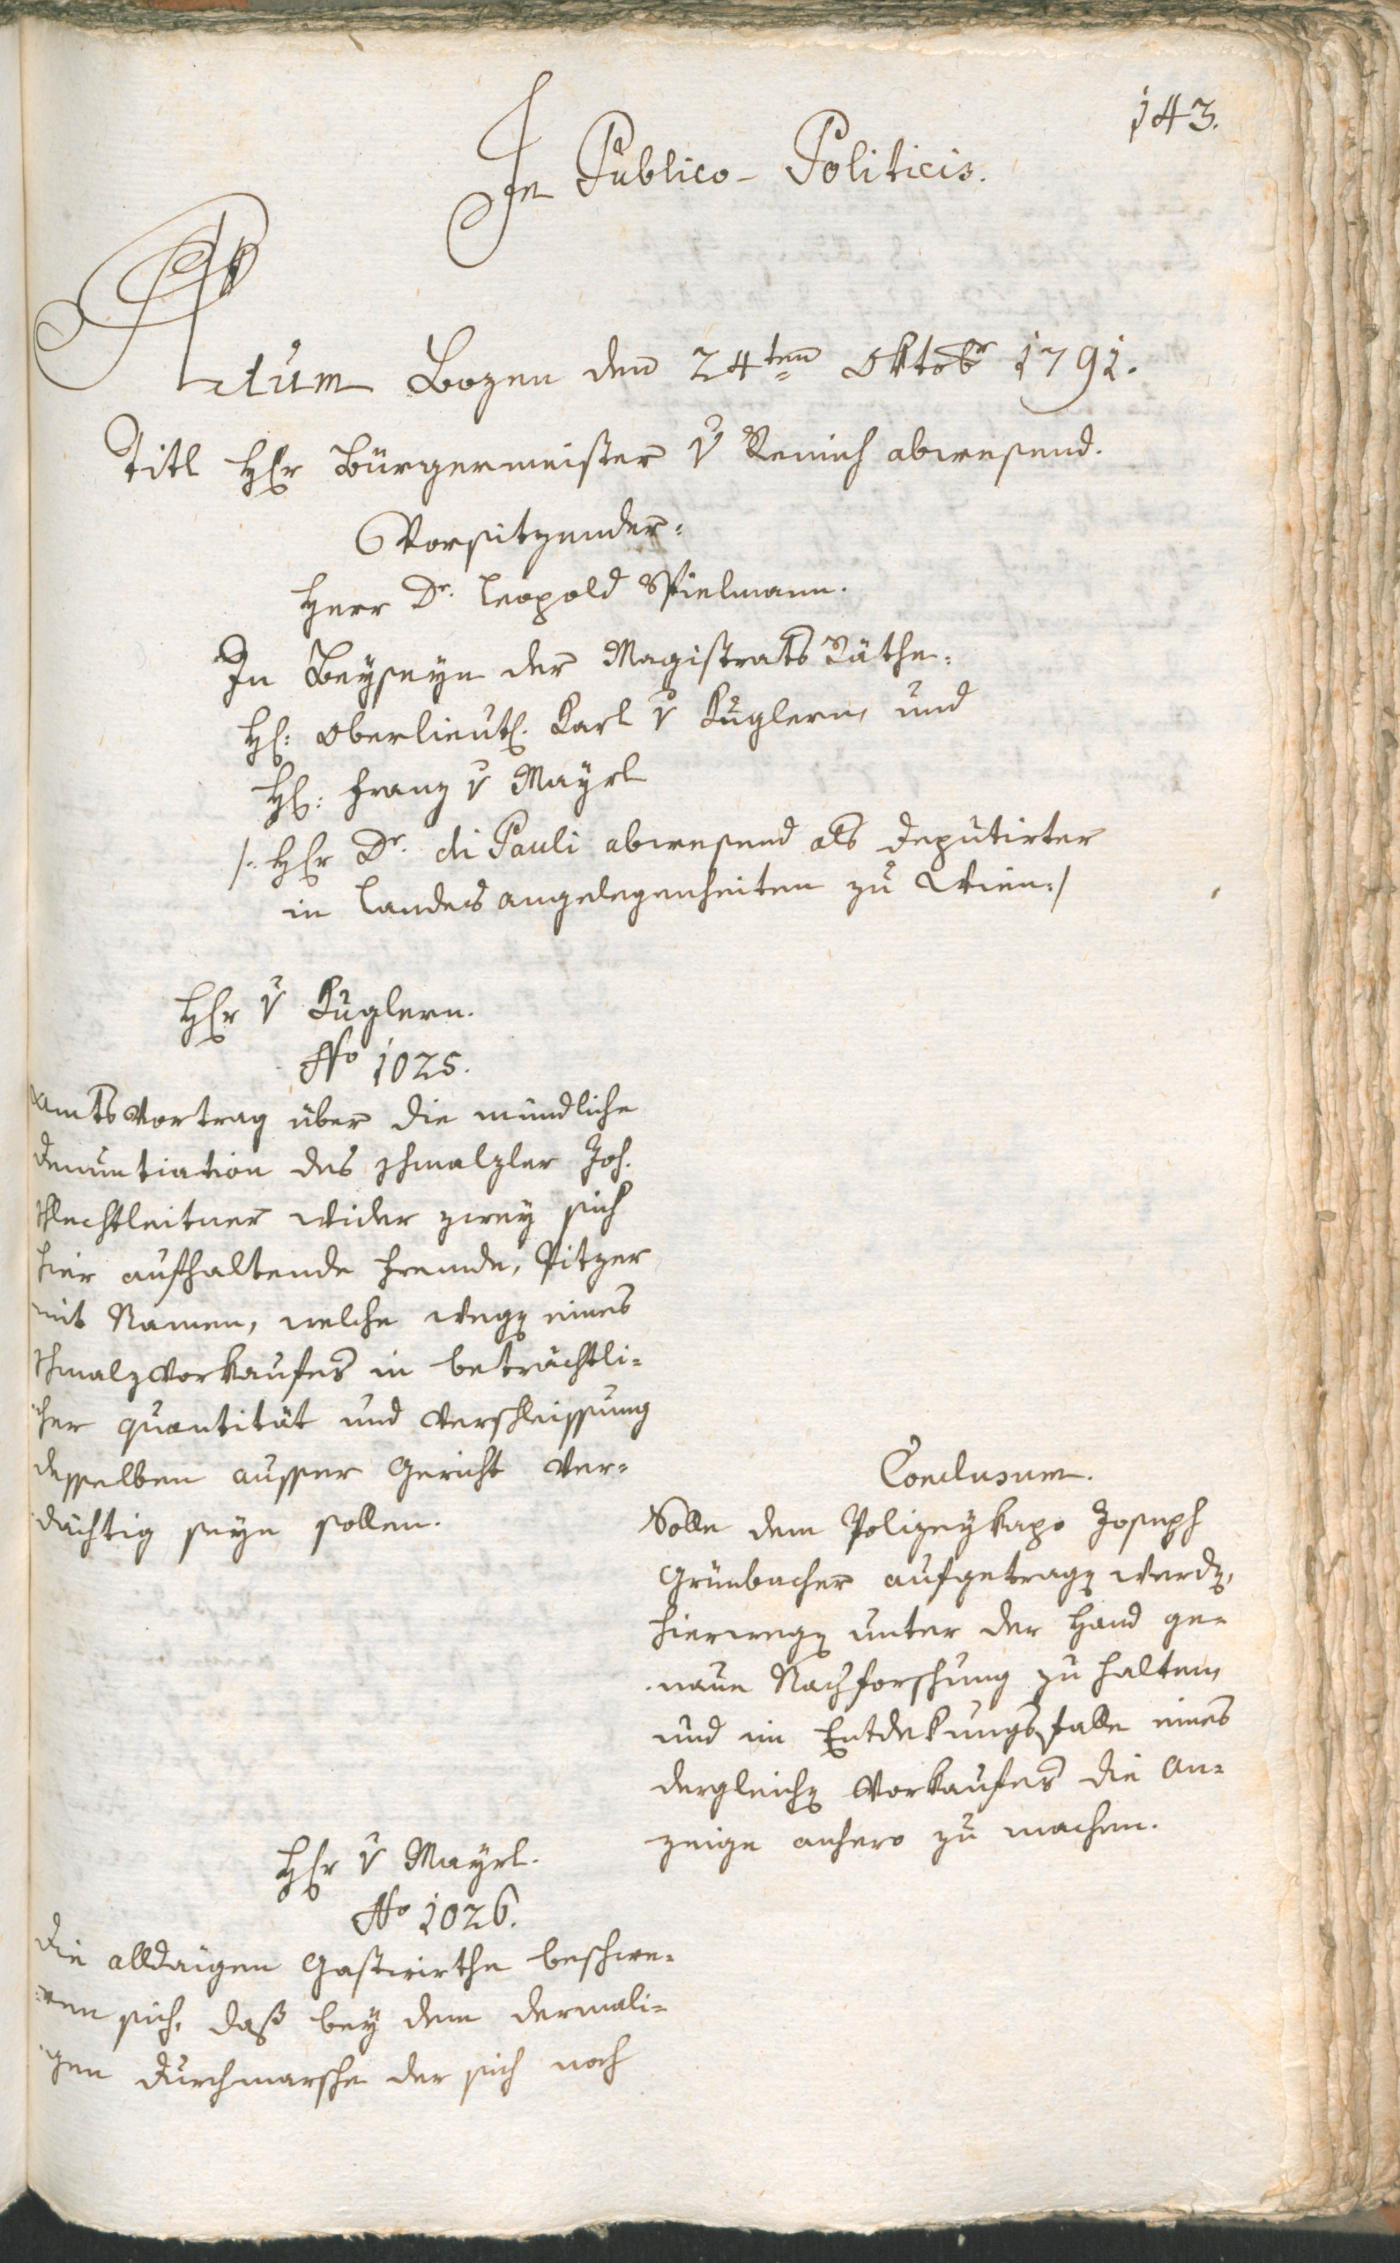 143.
In Publico-Politicis.
Actum Bozen den 24ten Oktobr 1791.
Titl Hr Bürgermeister v Remich abwesend.
Vorsitzender:
Herr Dr. Leopold Spielmann.
In Beyseyn der Magistrats Räthe:
H: Oberlieut. Karl v Kuglern, und
H: Franz v Mayrl
/: Hr Dr. di Pauli abwesend als Deputirter
in Landesangelegenheiten zu Wien :/
Hr v Kuglern.
No 1025.
Amts Vortrag über die mündliche
Denuntiation des Schmalzler Joh.
Flechtleitner wider zwey sich
hier aufhaltende Fremde, Pitzer
mit Namen, welche weg eines
Schmalzvorkaufes in beträchtli-
cher Quantität und Verschleissung
desselben ausser Gericht ver-
dächtig seyn sollen.
Conclusum.
Solle dem Polizeykapo Joseph
Grünbacher aufgetrag werd,
hierweg unter der Hand ge-
naue Nachforschung zu halten,
und im Entdekungsfalle eines
dergleich Vorkaufes die An-
zeige anhero zu machen.
Hr v Mayrl.
No 1026.
Die alldaigen Gastwirthe beschwe-
ren sich, daß bey dem dermali-
gen Durchmarsche der sich noch